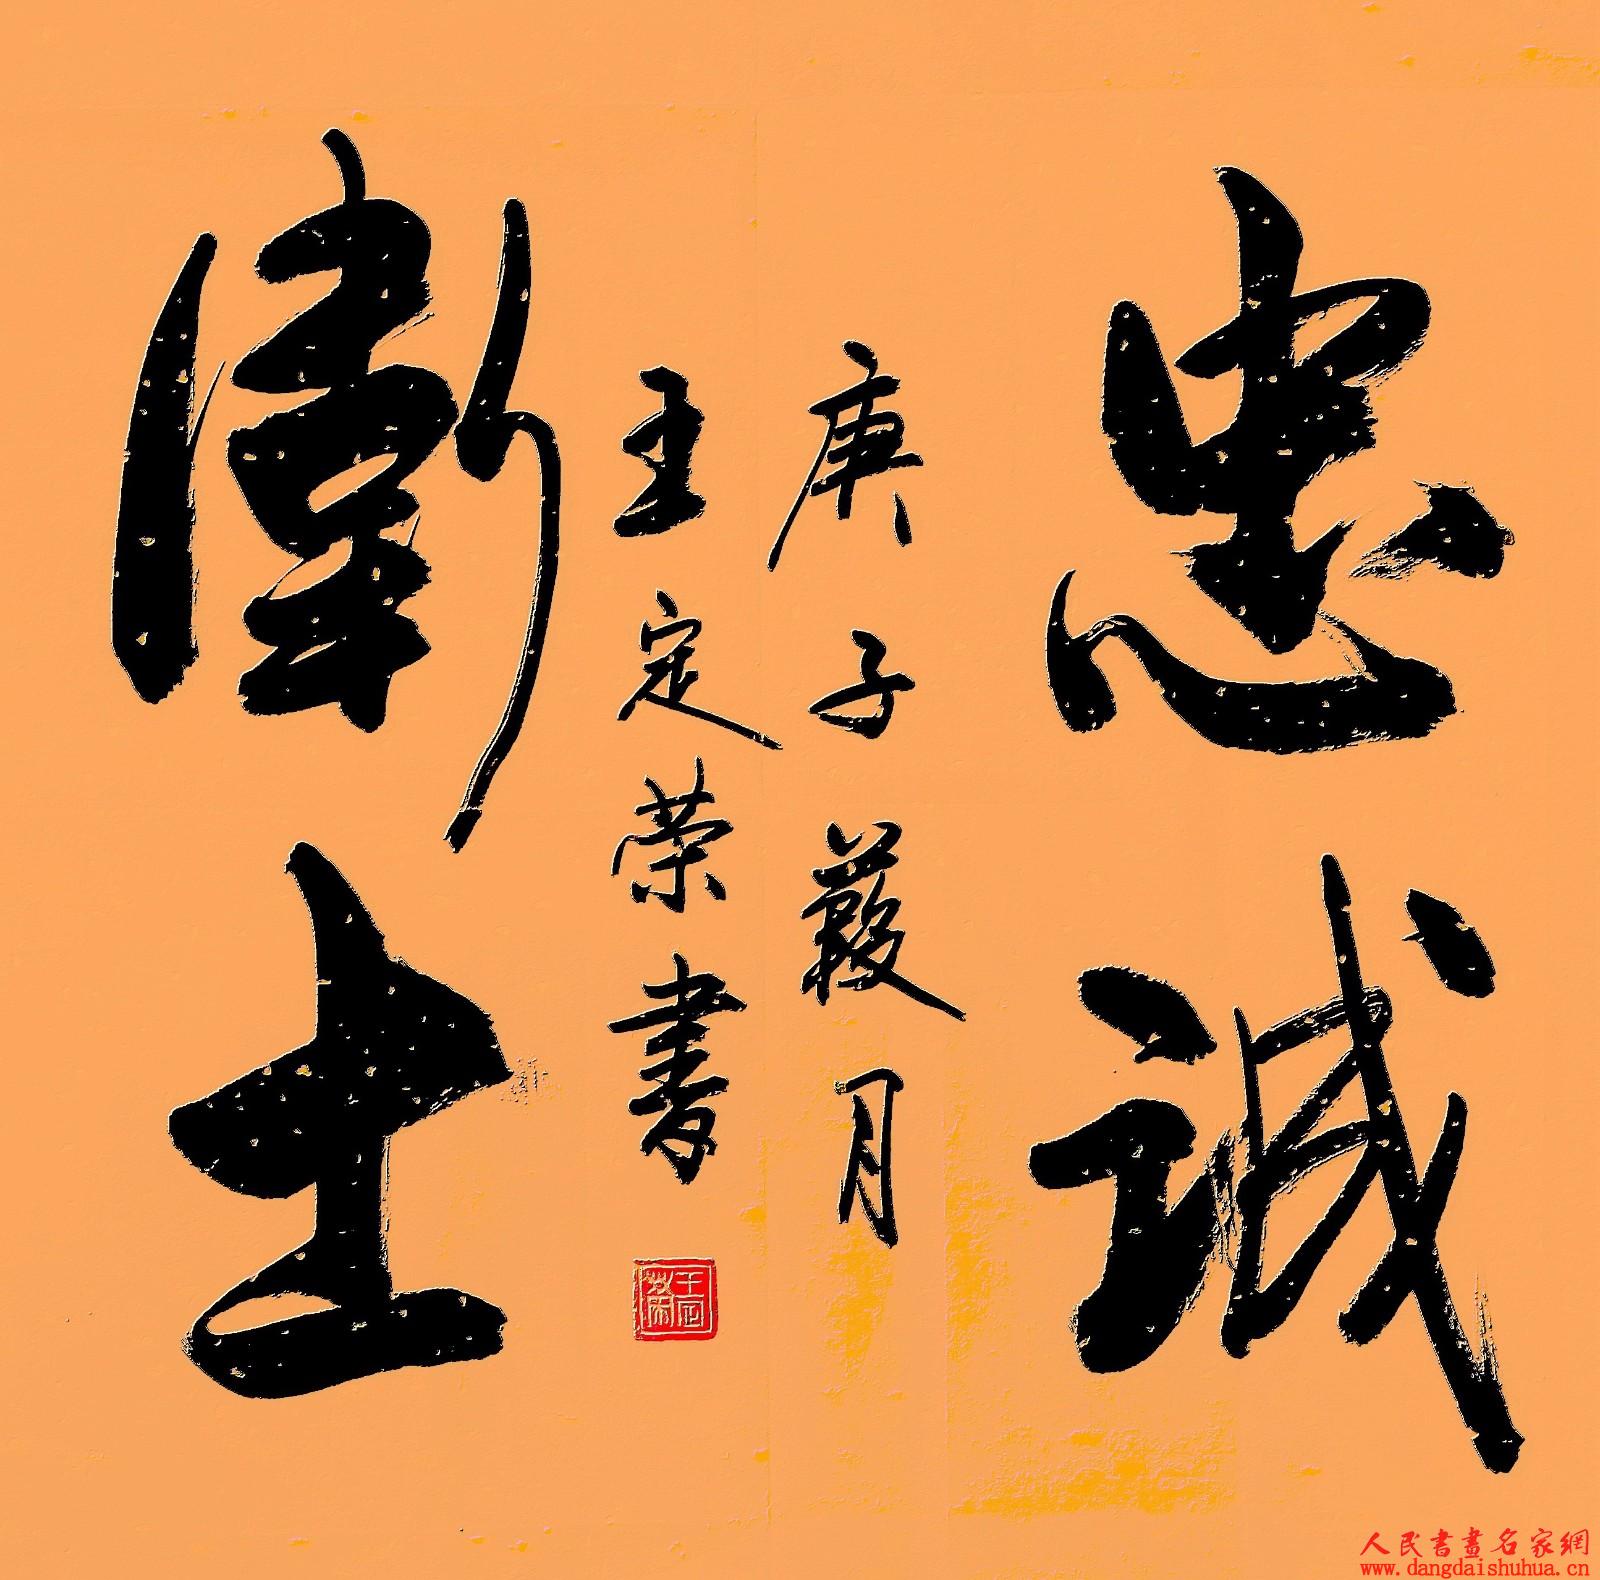 忠诚
庚子葭月
王定荣書
衛士
王定荣
人民書畫名家網
www.dangdaishuhua.cn